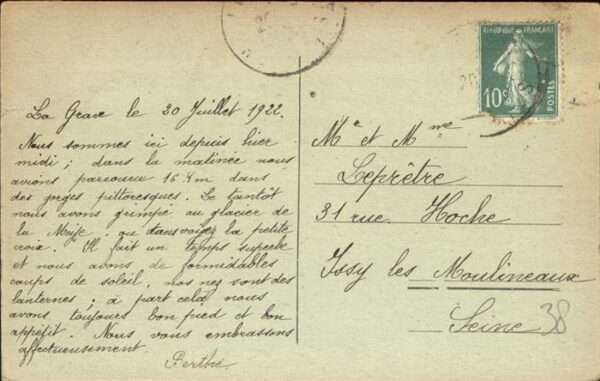 La Grave le 20 Juillet 1922.
Nous sommes ici depuis hier
midi ; dans la matinée nous
avions parcouru 16 km dans
des gorges pittoresques. Ce tantôt
nous avons grimpé au glacier de
la Meije, où vous voyez la petite
croix. Il fait un temps superbe
et nous avons de formidables
coups de soleil, nos nez sont des
lanternes ; à part cela, nous
avons toujours bon pied et bon
appétit. Nous vous embrassons
affectueusement.
REPUBLIQUE FRANÇAISE
10c
POSTES
Mr et Mme
Leprêtre
31 rue Hoche
Issy les Moulineaux
Seine
38